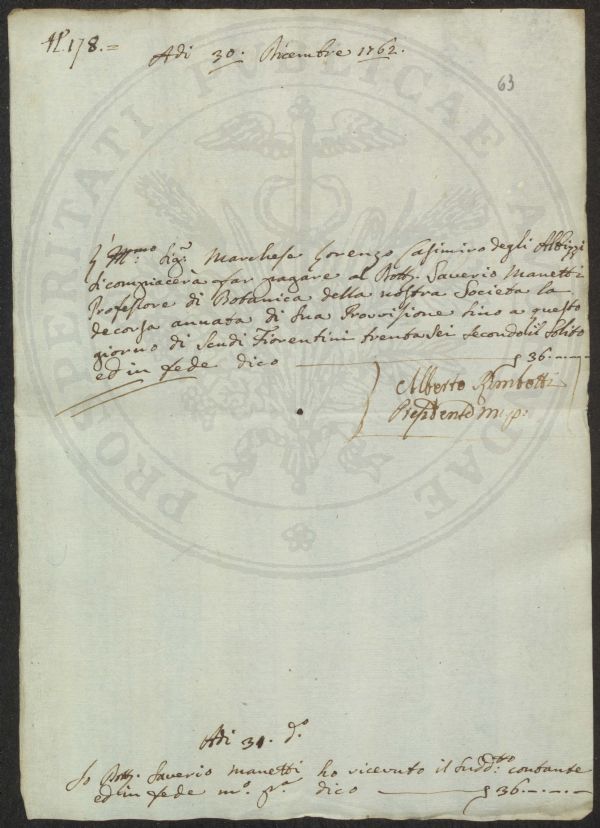 N.º 178.=
Adi 30. Dicembre 1762.
63
L'Ill.mo Sig.r Marchese Lorenzo Casimiro degli Albizzi
si compiacerà far pagare al Dott. Saverio Manetti
Professore di Botanica della nostra Societa la
decorsa annata di sua Provvisione sino a questo
giorno di Scudi Fiorentini trenta sei secondo il solito
ed in fede dico 36.
Alberto Rimbotti
Presidente m. p.
Adi 31. d.º
Io Dott. Saverio Manetti ho ricevuto il sudd.to contante
ed in fede m.º p.ª dico 36.
PROSPERITATI PUBLICAE AUGENDAE